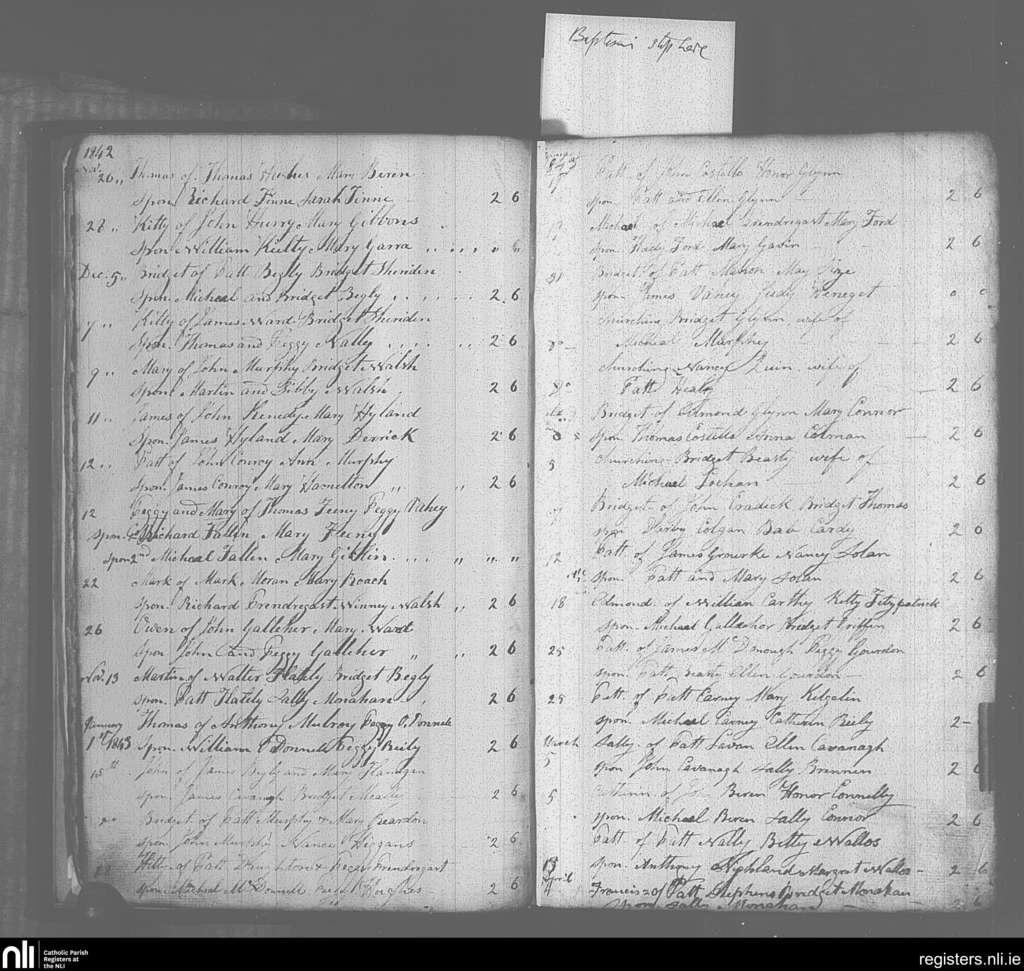 Baptism stop here
1842
Nov. 20 ,, Thomas of Thomas Hughes Mary Biren
spon Richard Finne Sarah Finne 2 6
28 ,, Kitty of John Hurry Mary Gibbons
spon William Kielty Mary Garra
Dec. 5 ,, Bridget of Patt Begly Bridget Sheriden
spon. Micheal and Bridget Begly 2 6
7 ,, Kitty of James Ward Bridget Sheriden
spon. Thomas and Peggy Nally 2 6
9 ,, Mary of John Murphy Bridget Walsh
spon Martin and Sibby Walsh 2 6
11 ,, James of John Kenedy Mary Hyland
spon. James Hyland Mary Derrick 2 6
12 ,, Patt of John Conroy Ann Murphy
spon. James Conroy Mary 2 6
12 Peggy and Mary of Thomas Feeny Peggy
spon Richard Fallen Mary Feeny
spon 2nd Micheal Fallen Mary Giblin
22 Mark of Mark Moran Mary Roach
spon. Richard Prendregast Winney Walsh ,, 2 6
26 Owen of John Galleher Mary Ward
spon John and Peggy Galleher ,, ,, 2 6
Nov. 13 Martin of Walter Flately Bridget Begly
spon. Patt Flately Sally Monahan 2 6
January Thomas of Anthony Mulroy Peggy O Donnele
1st 1843 Spon. William O Donnele Peggy Reily 2 6
15th John of James Begly and Mary Flanigan
spon. James Cavanagh Bridget 2 6
Bridget of Patt Murphy & Mary Reardon
spon John Murphy Nancy Higgans 2 6
Kitty of Patt Prendregast
spon. Micheal Mc Donnell Hughes 2 6
1843
Patt. of John Costello Honor Glynn
spon Patt and Ellen Glynn 2 6
Micheal of Micheal Prendregast Mary Ford
spon Thady Ford Mary Gavin 2 6
Bridget of Patt Mahon Mary
spon. James Judy 0 0
churching Bridget Glynn wife of
Micheal Murphey 2 6
churching Nancy Quin wife of
Patt Healy 2 6
Bridget of Edmond Glynn Mary Connor
spon Thomas Costello Anna Colman 2 6
churching Bridget Beasty wife of
Michael 2 6
Bridget of John Cradick Bridget Thomas
spon Colgan Bab Cardy 2 6
12 Patt of James Grourke Nancy Solan
spon. Patt and Mary Solan 2 6
18 Edmond of William Carthy Kitty Fitzpatrick
spon. Michael Gallaher Bridget Griffin 2 6
25 Patt. of James Mc Donough Peggy Gourden
spon. Patt Beasty Ellen Gourdon 2 6
25 Patt. of Patt Carney Mary Kilgalin
spon. Micheal Carney Catherin Reily 2
March 5 Sally of Patt Lavan Ellen Cavanagh
spon John Cavanagh Sally Brennen 2 6
5 Catherin of John Biren Honor Connelly
spon. Micheal Biren Sally Connor 2 6
Patt of Patt Nally Betty Wallos
13 spon. Anthony Nyhland Margret Wallos 2 6
April 11 Francis of Patt Stephens Bridget Monahan
Spon Sally Monahan 2 6
nli Catholic Parish
Registers at
the NLI
registers.nli.ie